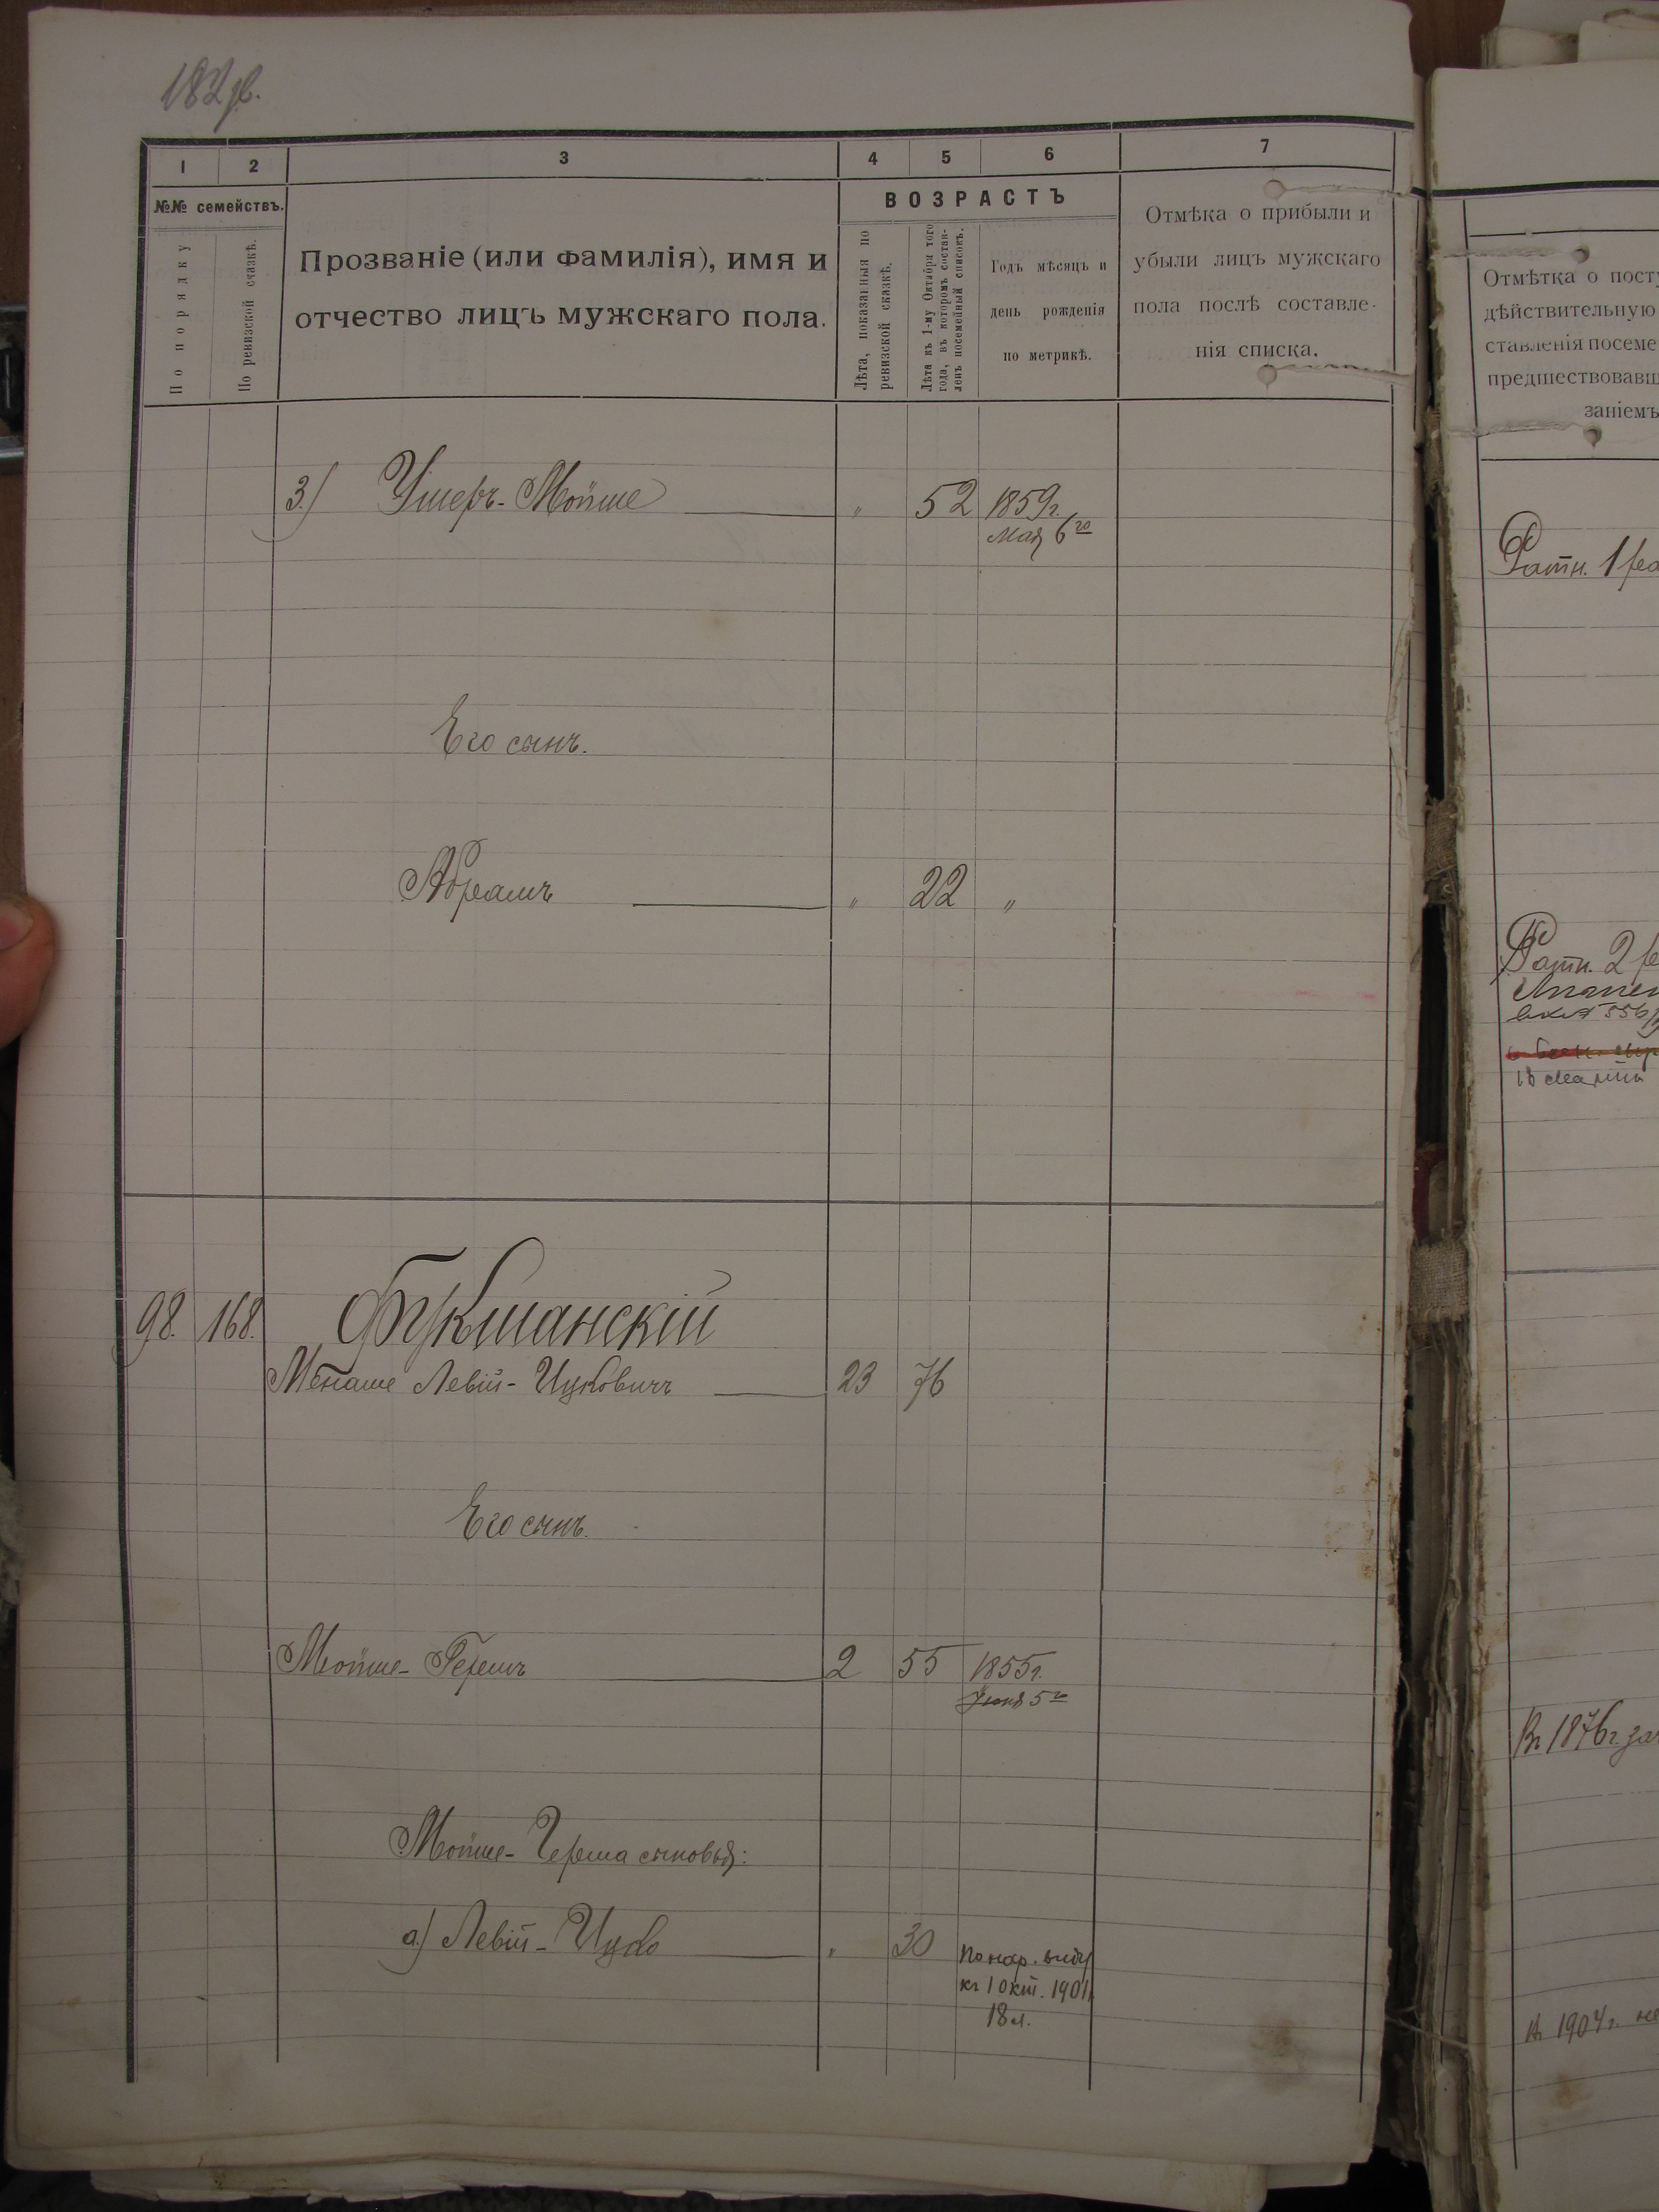 1 2 3 4 5 6 7
№№ семействъ.
По порядку
По ревизской сказкѣ.
Прозваніе (или фамилія), имя и
отчество лицъ мужскаго пола.
ВОЗРАСТЪ
Лѣта, показанныя по
ревизской сказкѣ.
Лѣта къ 1-му Октября того
года, въ которомъ состав-
ленъ посемейный списокъ.
Годъ мѣсяцъ и
день рожденія
по метрикѣ.
Отмѣка о прибыли и
убыли лицъ мужскаго
пола послѣ составле-
нія списка.
3.) Ушеръ-Мойше " 52 1859г.
Мая 6го
Его сынъ.
Абрамъ " 22 "
98. 168. Фукшанскій
Менаше Левій-Ицковичъ 23 76
Его сынъ.
Мойше-Гершъ 2 55 1855г.
Іюня 5го
Мойше-Герша сыновья:
а.) Левій-Ицко " 30 по нар. виду
къ 1 окт. 1901г.
18 л.
Отмѣтка о посту
дѣйствительную
ставленія посеме
предшествовавш
заніемъ
Ратн. 1 раз
Ратн. 2 ра
Въ 1876г. за
Въ 1904г. не